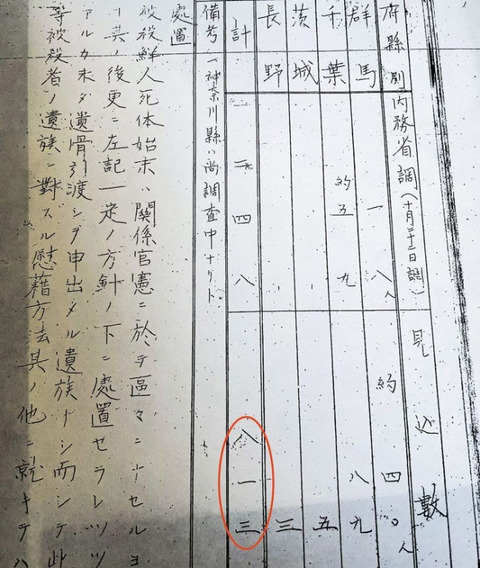 府縣別 内務省調(十月二十二日調) 見込數
群馬 一八人 約四〇人
千葉 約五九 八九
茨城 五
長野 三
計 二四八 八一三
備考 一神奈川縣ハ尚調査中ナリト
處置
被殺鮮人死体始末ハ關係官憲ニ於テ區々ニナセルヨ
リ其ノ後更ニ左記一定ノ方針ノ下ニ處置セラレツツ
アルカ未ダ遺骨引渡シヲ申出タル遺族ナシ而シテ此
等被殺者ノ遺族ニ對スル慰藉方法其ノ他ニ就キテハ